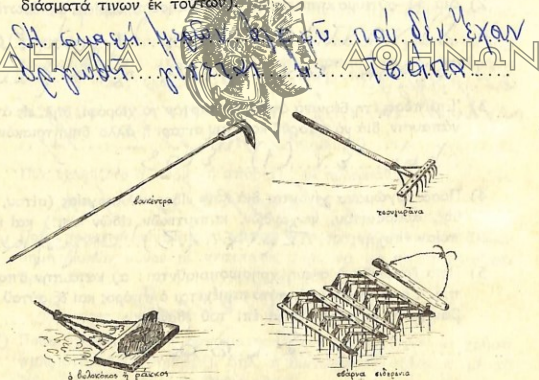 διάσματά τινων ἐκ τούτων).
Ἡ σκαφὴ μερῶν ἀγροῦ ποὺ δὲν ἔχουν
ὀργωθῆ γίνεται μὲ τσάπα
ΔΗΜΙΑ ΑΘΗΝΩΝ
τσουγκράνα
ὁ βωλοκόπος ἢ ράκκος
σβάρνα σιδερένια